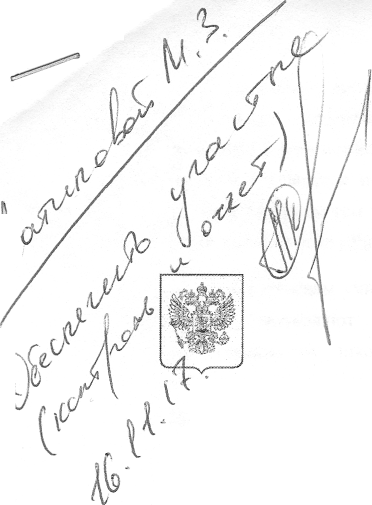 атиповой М.З.
Обеспечить участие
(контроль и отчет)
16.11.17.